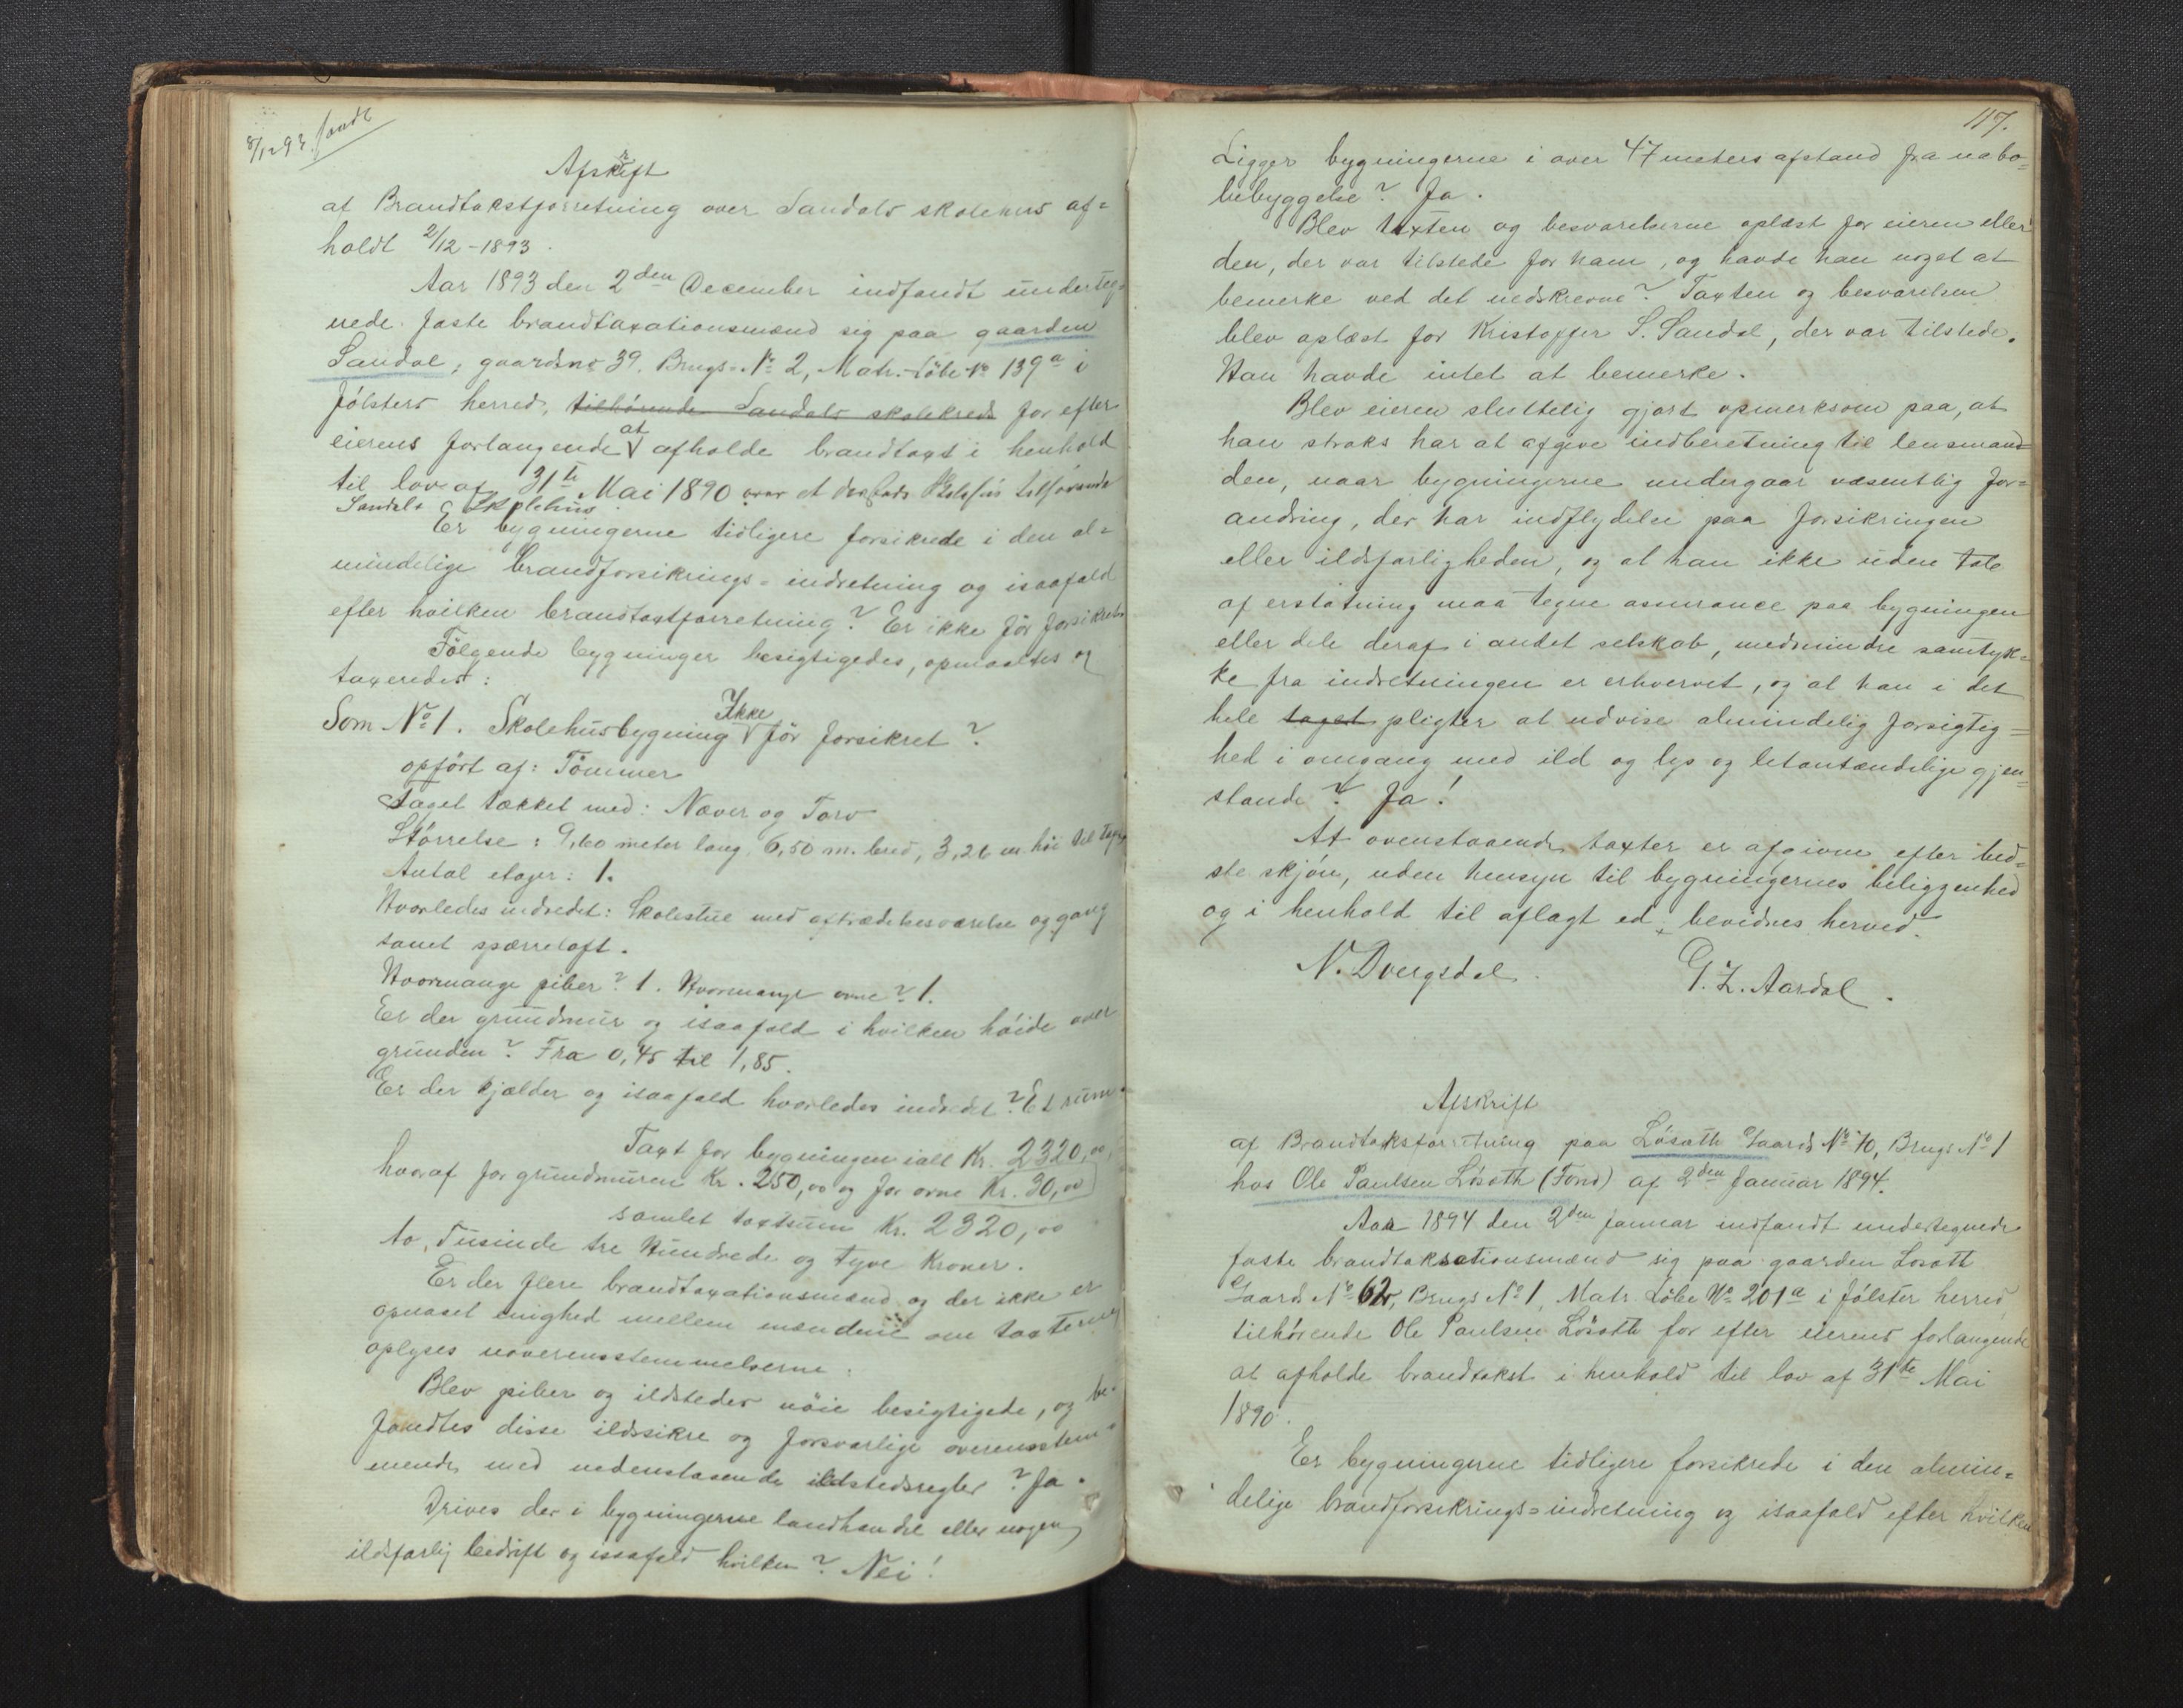 8/12 93. sandt
Afskrift
af Brandtakstforretning over Sandals skolehus af=
holdt 2/12-1893.
Aar 1893 den 2den December indfandt underteg=
nede faste brandtaxationsmænd sig paa gaarden
Sandal, gaardno 39. Brugs-No 2, Matr.-Löbe No 139a i
Jölsters herred, tilhörende Sandals skolekreds for efter
eierens forlangende at afholde brandtaxt i henhold
til lov af 31te Mai 1890 over et tilhörende
Sandals Skolehus.
Er bygningerne tidligere forsikrede i den al=
mindelige brandforsikrings-indretning og isaafald
efter hvilken brandtaxtforretning? Er ikke för forsikret
Fölgende bygninger besigtigedes, opmaaltes og
taxeredes:
Som No 1. Skolehusbygning Ikke för forsikret?
opfört af: Tömmer
Taget tækket med: Næver og Torv
Störrelse: 9,60 meter lang, 6,50 m. bred, 3,26 m. höi til taget
Antal etager: 1.
Hvorledes indredet: Skolestue med aftrædelsesværelse og gang
samt spærreloft.
Hvormange piber? 1. Hvormange ovne? 1.
Er der grundmur og isaafald i hvilken höide over
grunden? Fra 0,45 til 1,85.
Er der kjælder og isaafald hvorledes indredet? Et rum.
Taxt for bygningen ialt Kr. 2320,00,
hvoraf for grundmuren Kr. 250,00 og for ovne Kr. 30,00
samlet taxtsum Kr. 2320,00
to, Tusinde tre Hundrede og tyve Kroner.
Er der flere brandtaxationsmænd og der ikke er
opnaaet enighed mellem mændene om taxterne
oplyses uoverensstemmelserne:
Blev piber og ildsteder nöie besigtigede, og be=
fandtes disse ildssikre og forsvarlige overensstem=
mende med nedenstaaende ildstedsregler? Ja.
Drives der i bygningerne landhandel eller nogen
ildsfarlig bedrift og isaafald hvilken? Nei!
117.
Ligger bygningerne i over 47 meters afstand fra nabo=
bebyggelse? Ja.
Blev taxten og besvarelserne oplæst for eieren eller
den, der var tilstede for ham, og havde han noget at
bemerke ved det nedskrevne? Taxten og besvarelsen
blev oplæst for Kristoffer S. Sandal, der var tilstede.
Han havde intet at bemerke.
Blev eieren sluttelig gjort opmerksom paa, at
han straks har at afgive indberetning til lensmand=
den, naar bygningerne undergaar væsentlig for=
andring, der har indflydelse paa forsikringen
eller ildsfarligheden, og at han ikke uden tab
af erstatning maa tegne assurance paa bygningen
eller dele deraf i andet selskab, medmindre samtyk=
ke fra indretningen er erhvervet, og at han i det
hele taget pligter at udvise almindelig forsigtig=
hed i omgang med ild og lys og letantændelige gjen=
stande? Ja!
At ovenstaaende taxter er afgivne efter bed=
ste skjön, uden hensyn til bygningernes beliggenhed
og i henhold til aflagt ed, bevidnes herved.
N. Dvergsdal. G. Z. Aardal.
Afskrift
af Brandtakstforretning paa Lösæth Gaards No 70, Brugs No 1
hos Ole Paulsen Lösæth (Fond) af 2den Januar 1894.
Aar 1894 den 2den Januar indfandt undertegnede
faste brandtaksationsmænd sig paa gaarden Losæth
Gaards No 62, Brugs No 1, Matr. Löbe No 201a i Jölster herred
tilhörende Ole Paulsen Lösæth for efter eierens forlangende
at afholde brandtakst i henhold til lov af 31te Mai
1890.
Er bygningerne tidligere forsikrede i den almin=
delige brandforsikrings=indretning og isaafald efter hvilken